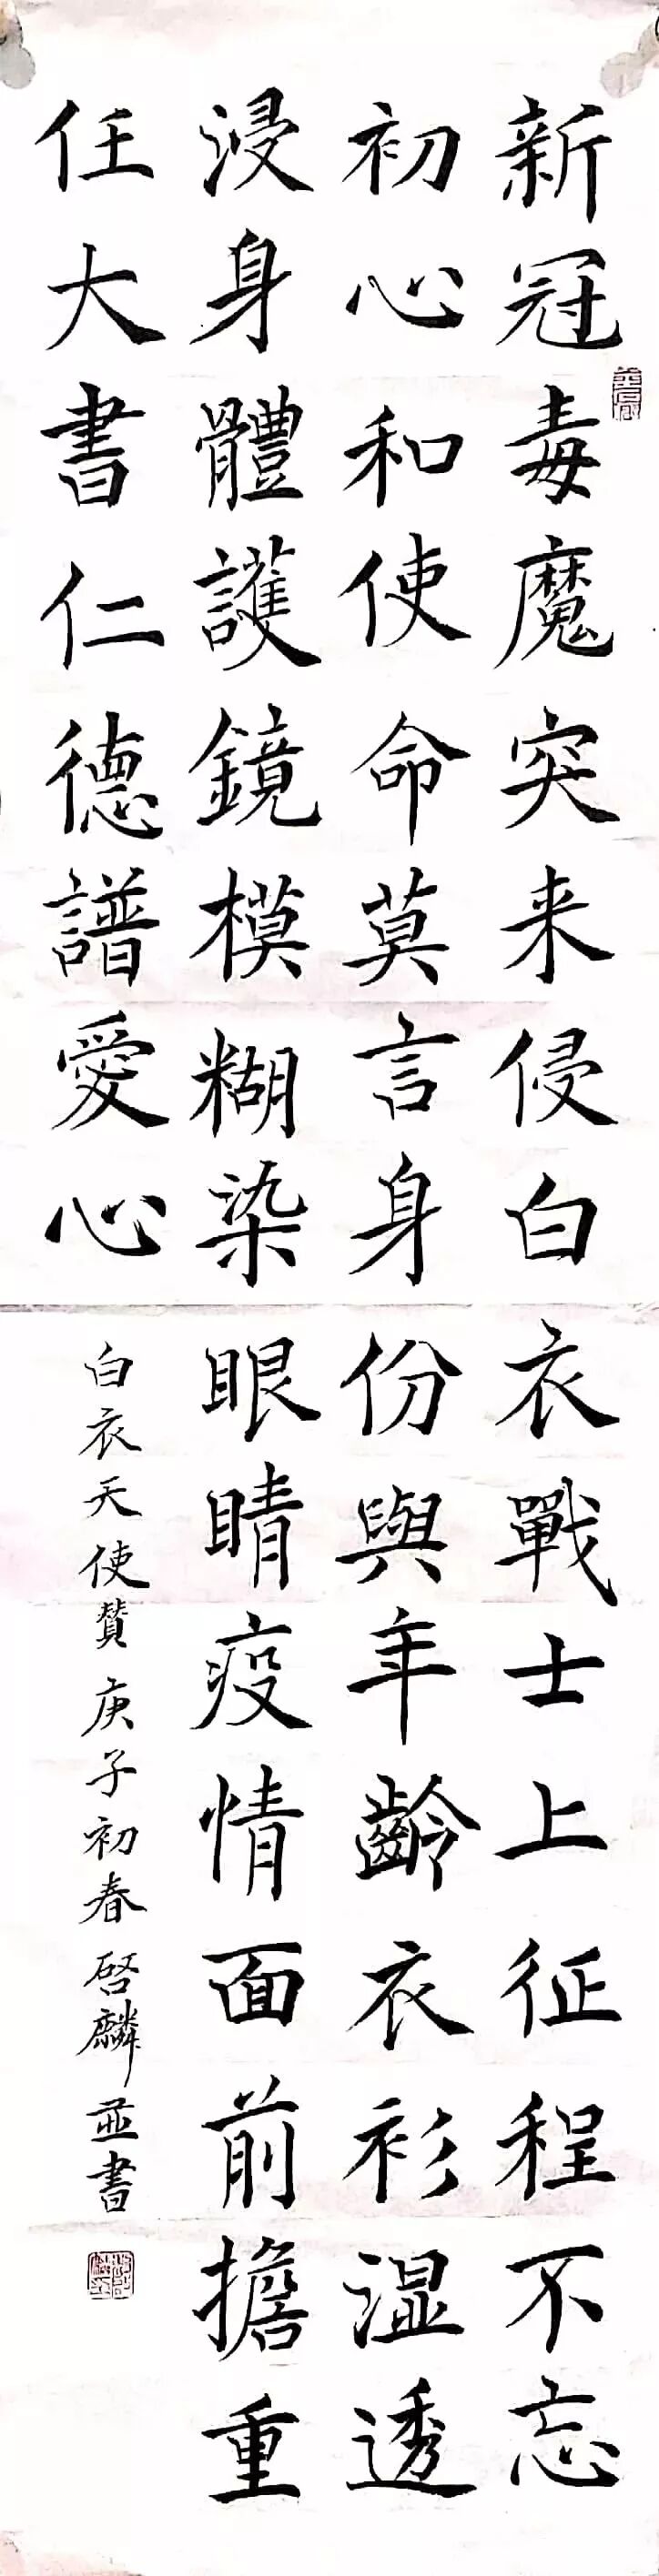 新冠毒魔突来侵白衣戰士上征程不忘
初心和使命莫言身份與年齡衣衫湿透
浸身體護鏡模糊染眼睛疫情面前擔重
任大書仁德譜愛心
白衣天使贊庚子初春啓麟並書